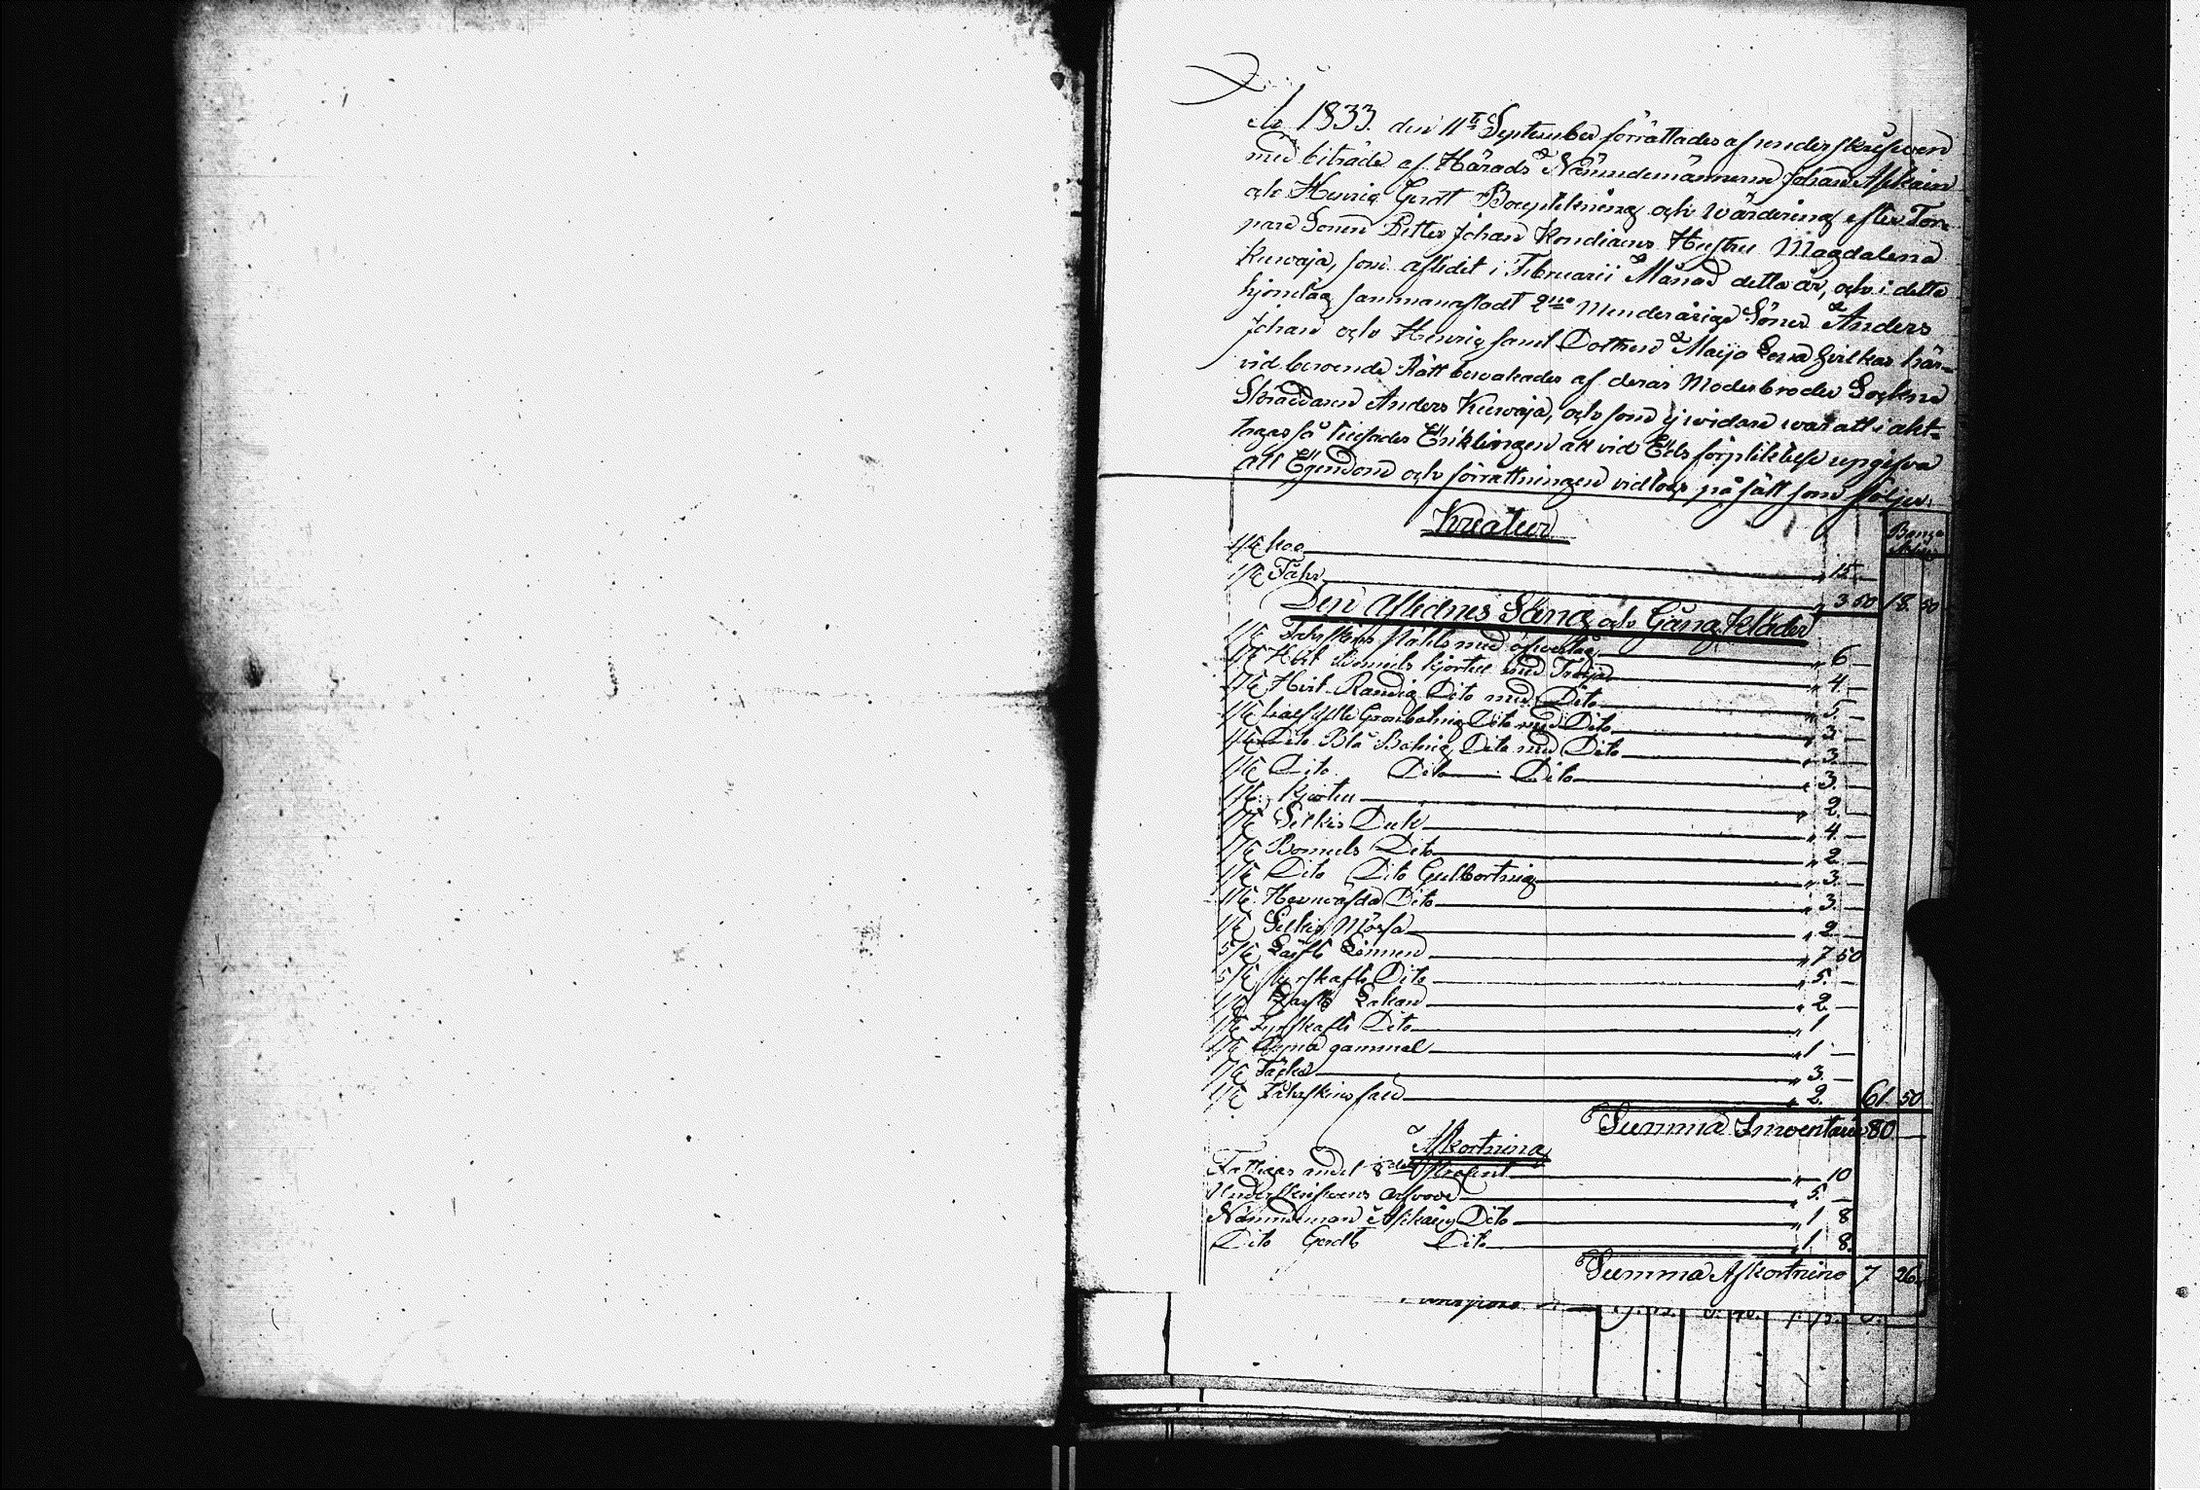 År 1833. den 11te September förrättades af underskrefven
med biträde af Härads Nämndemännerne Johan Afikain
och Henric Gerdt Bouptekning och Wärdering efter Tor-
pare Sonen Petter Johan Kondians Hustru Magdalena
Kuwaja, som aflidit i Februarii Månad detta år, och i detta
hjonelag sammanafladt 2ne Minderåriga Söner Anders
Johan och Henric samt Dottren Maija Lena hvilkas här-
vid beroende Rätt bevakades af deras Moderbroder Sockne
Skräddaren Anders Kuwaja, och som ej widare war att i akt-
tagas så tillsades Enklingen att vid Eds förpliktelse upgifva
all Egendom och förrättningen vidtogs på sätt som följer.
Kreatur Banco
1/E koo 15 —
1/E Fåhr 3 50 18. 50
Den Aflednes Säng och Gång kläder
1/E Fahrskins med 6 —
1/E Hvit Bomuls kjortel med Tröija 4. —
1/E Hvit Randig Dito med Dito 5. —
1/E half ylle Grönbotnig Dito med Dito 3. —
1/E Dito Blå Botnig Dito med Dito 3. —
1/E Dito Dito Dito 3. —
1/E kjortel 2. —
1/E Silkes Duk 4. —
1/E Bomuls Dito 2. —
1/E Dito Dito Gulbortnig 3. —
1/E Hemväfda Dito 3. —
1/E Silkes Mössa 2 —
5/E Lärfts Linnen 7 50
5/E fyrskafts Dito 5. —
1/E Lärfts Lakan 2 —
1/E Fyrskafts Dito 1
1/E Dyna gammal 1 —
1/E Täcke 3. —
1/E Fåhrskins fäll 2. 61 50
Summa Inventarie 80 —
Afkortning
Fattigas andel 8dels Procent 10
Underskrifvens arfvode 5. —
Nämndeman Afikain Dito 1 8
Dito Gerdts Dito 1 8.
Summa Afkortning 7 26.